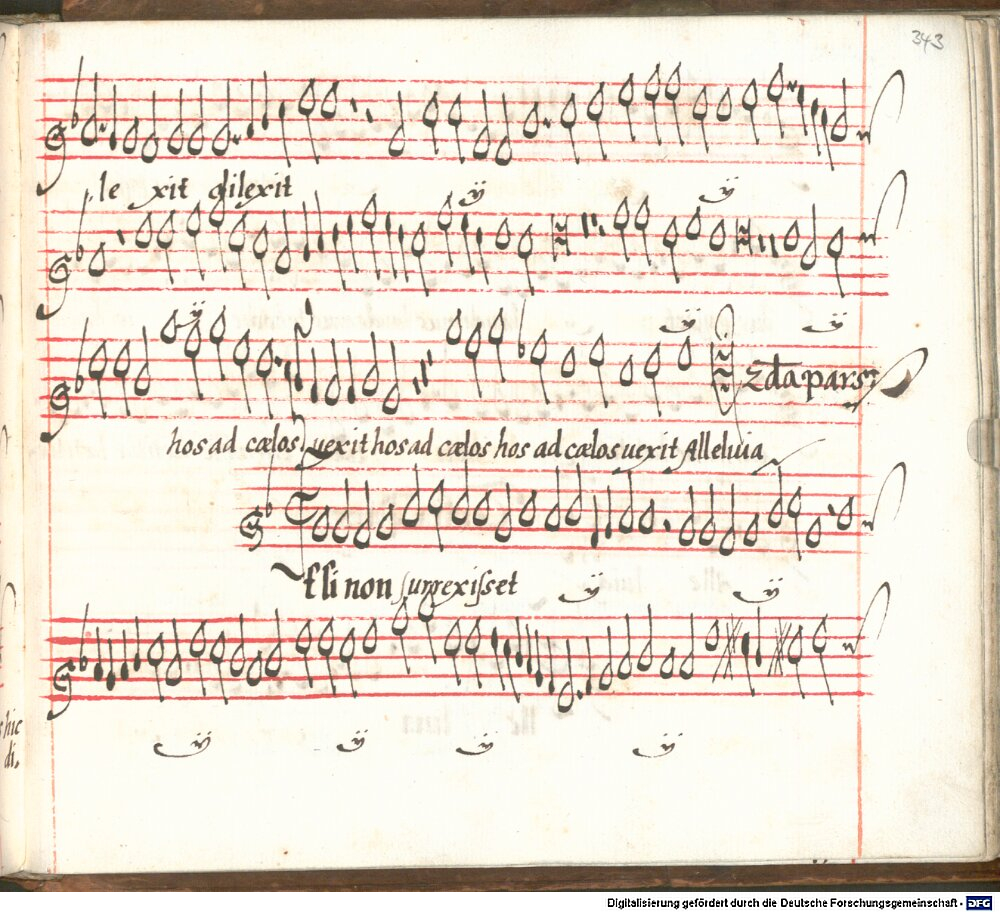 343
le xit dilexit ij ij
ij ij ij
2da pars
hos ad cælos vexit hos ad cælos hos ad cælos uexit Alleluia
Et si non surrexisset ij ij
ij ij ij ij
hic
di.
Digitalisierung gefördert durch die Deutsche Forschungsgemeinschaft - DFG